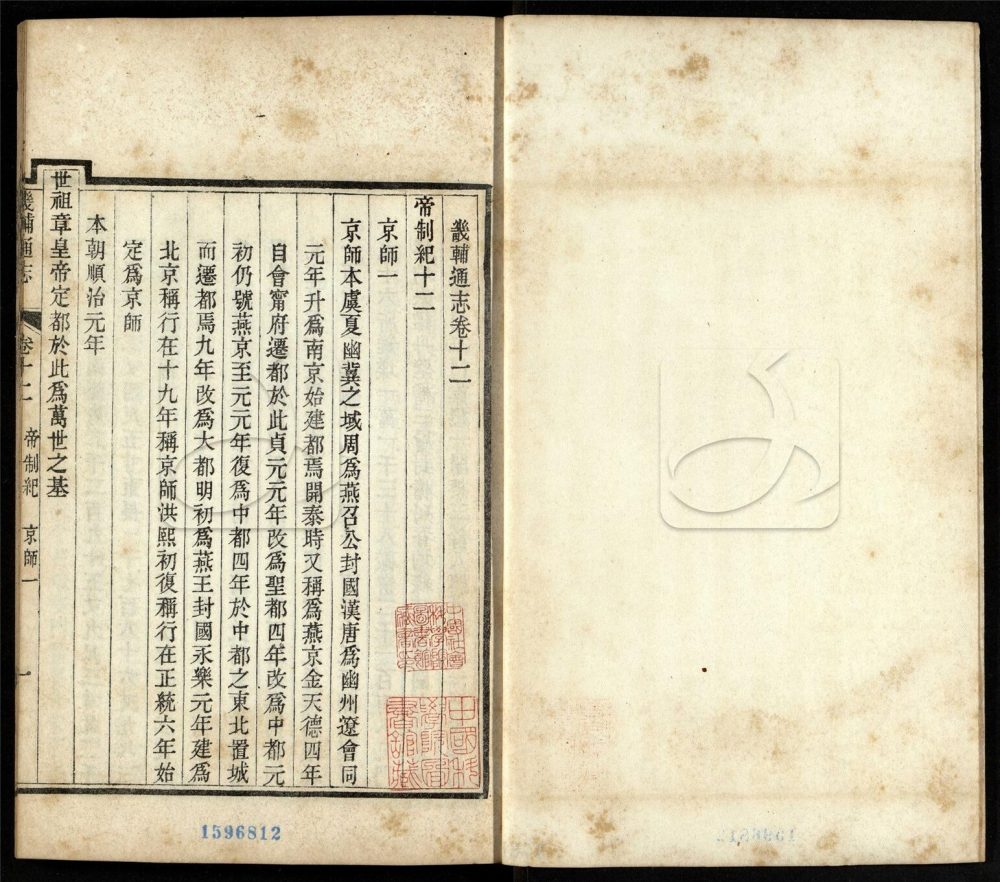 畿輔通志卷十二
帝制紀十二
京師一
京師本虞夏幽冀之域周爲燕召公封國漢唐爲幽州遼會同
元年升爲南京始建都焉開泰時又稱爲燕京金天德四年
自會甯府遷都於此貞元元年改爲聖都四年改爲中都元
初仍號燕京至元元年復爲中都四年於中都之東北置城
而遷都焉九年改爲大都明初爲燕王封國永樂元年建爲
北京稱行在十九年稱京師洪熙初復稱行在正統六年始
定爲京師
本朝順治元年
世祖章皇帝定都於此爲萬世之基
畿輔通志
卷十二 帝制紀 京師一
一
中國社會
科學院
圖書館
中國科
學院圖
書館藏
1596812